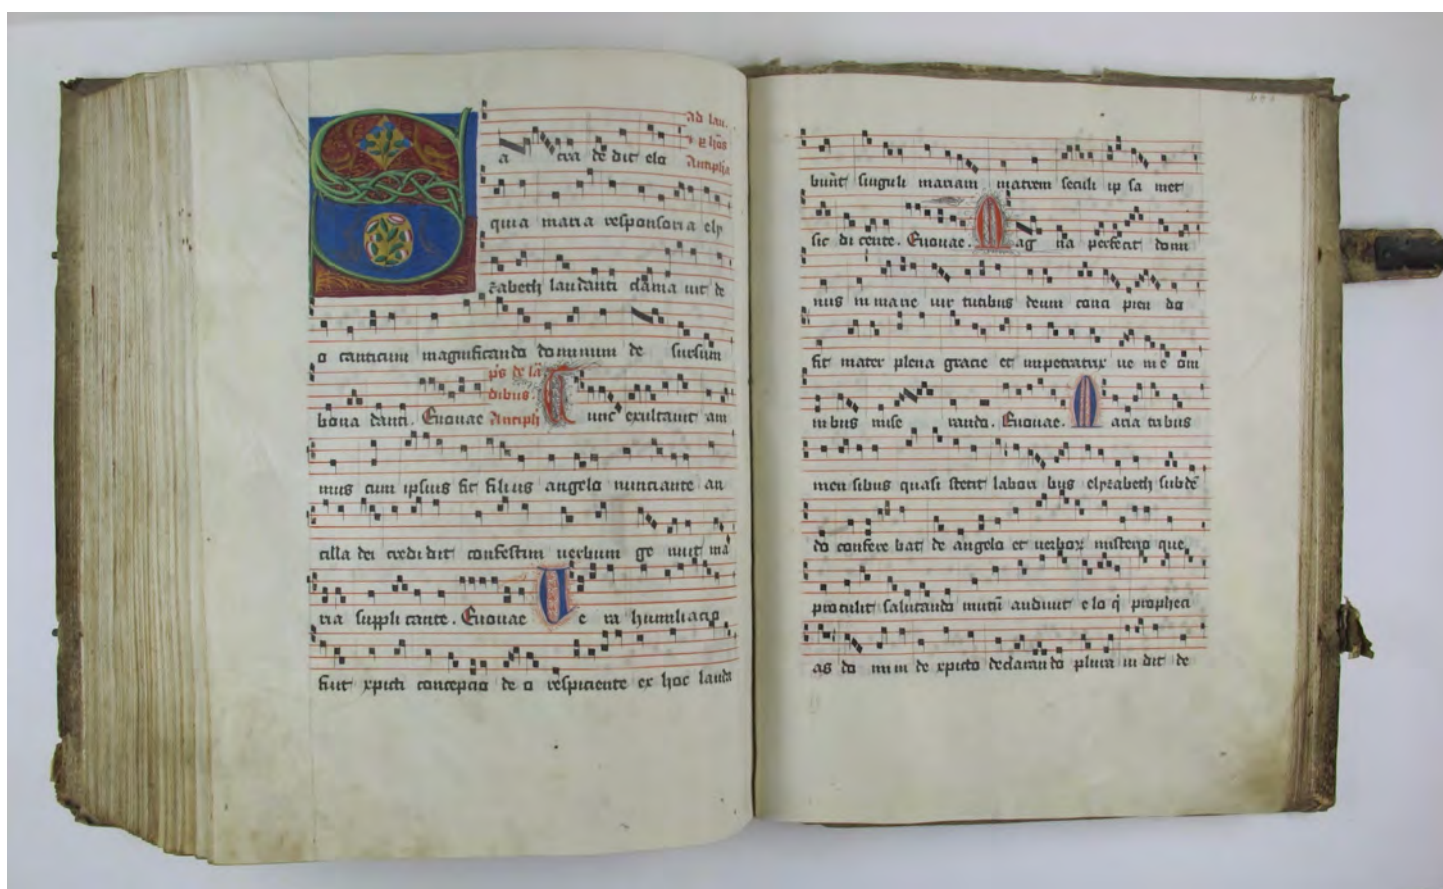 Sa cra de dit elo ad lau.
quia maria responsoria ely
Antipha
zabeth laudanti clama uit de
o canticum magnificando dominum de sursum
ps de la
dibus.
bona danti. Euouae Antiph Tunc exultauit am
mus cum ipsius fit filius angelo nunciante an
cilla dei credi dit confestim uerbum ge nuit ma
ria suppli cante. Euouae Ve ra humiliacio
fiut xpicti concepcio de o respiciente ex hoc lauda
bunt singuli mariam matrem seculi ip sa met
sic di cente. Euouae. Mag na perfecit domi
nus in maria uir tutibus deum conci pien do
fit mater plena gracie et impetratrix ue nie om
nibus mise rando. Euouae. Maria tribus
men sibus quasi stetit labori bus elyzabeth sub de
do confere bat de angelo et uerbox misterio que
protulit salutando mutu audiuit elo q propheci
as do mini de xpicto declarando plura ui dit de